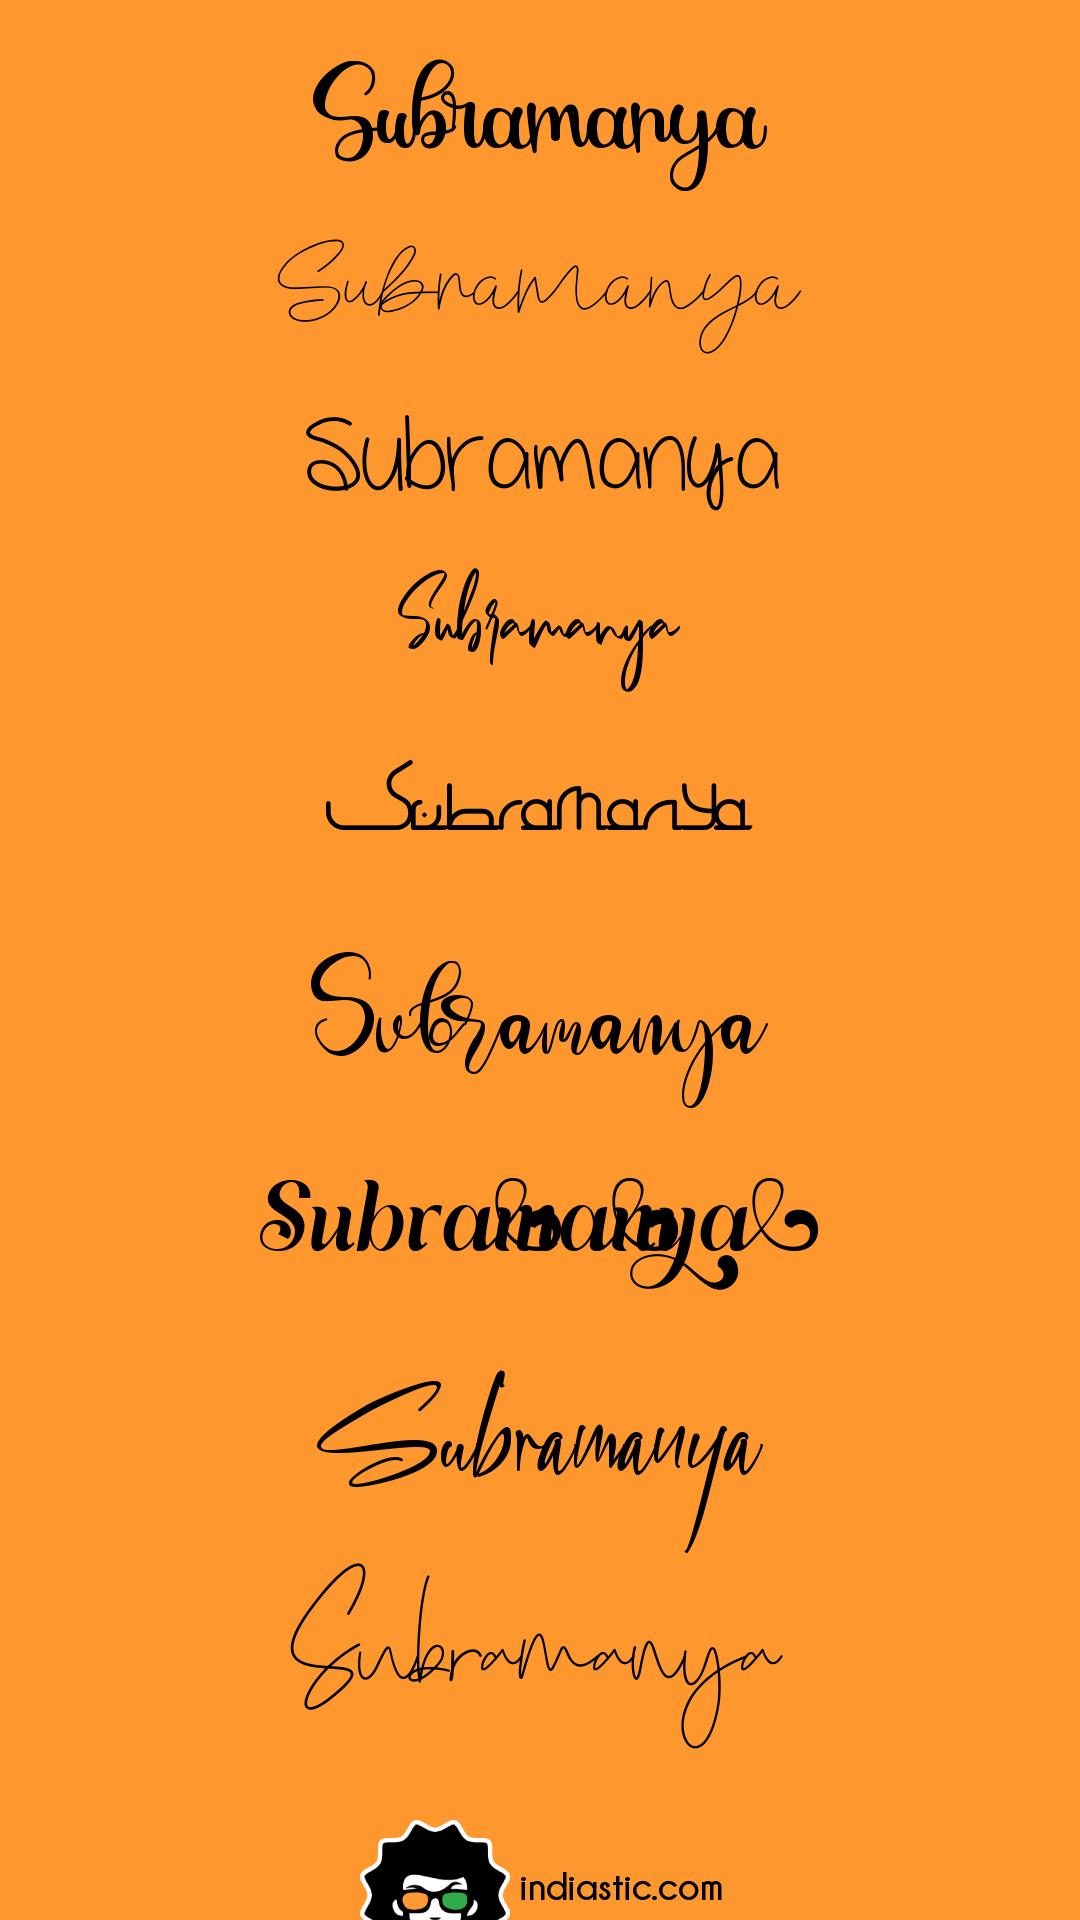 Subramanya
Subramanya
Subramanya
Subramanya
Subramanya
Subramanya
Subramanya
Subramanya
Subramanya
indiastic.com